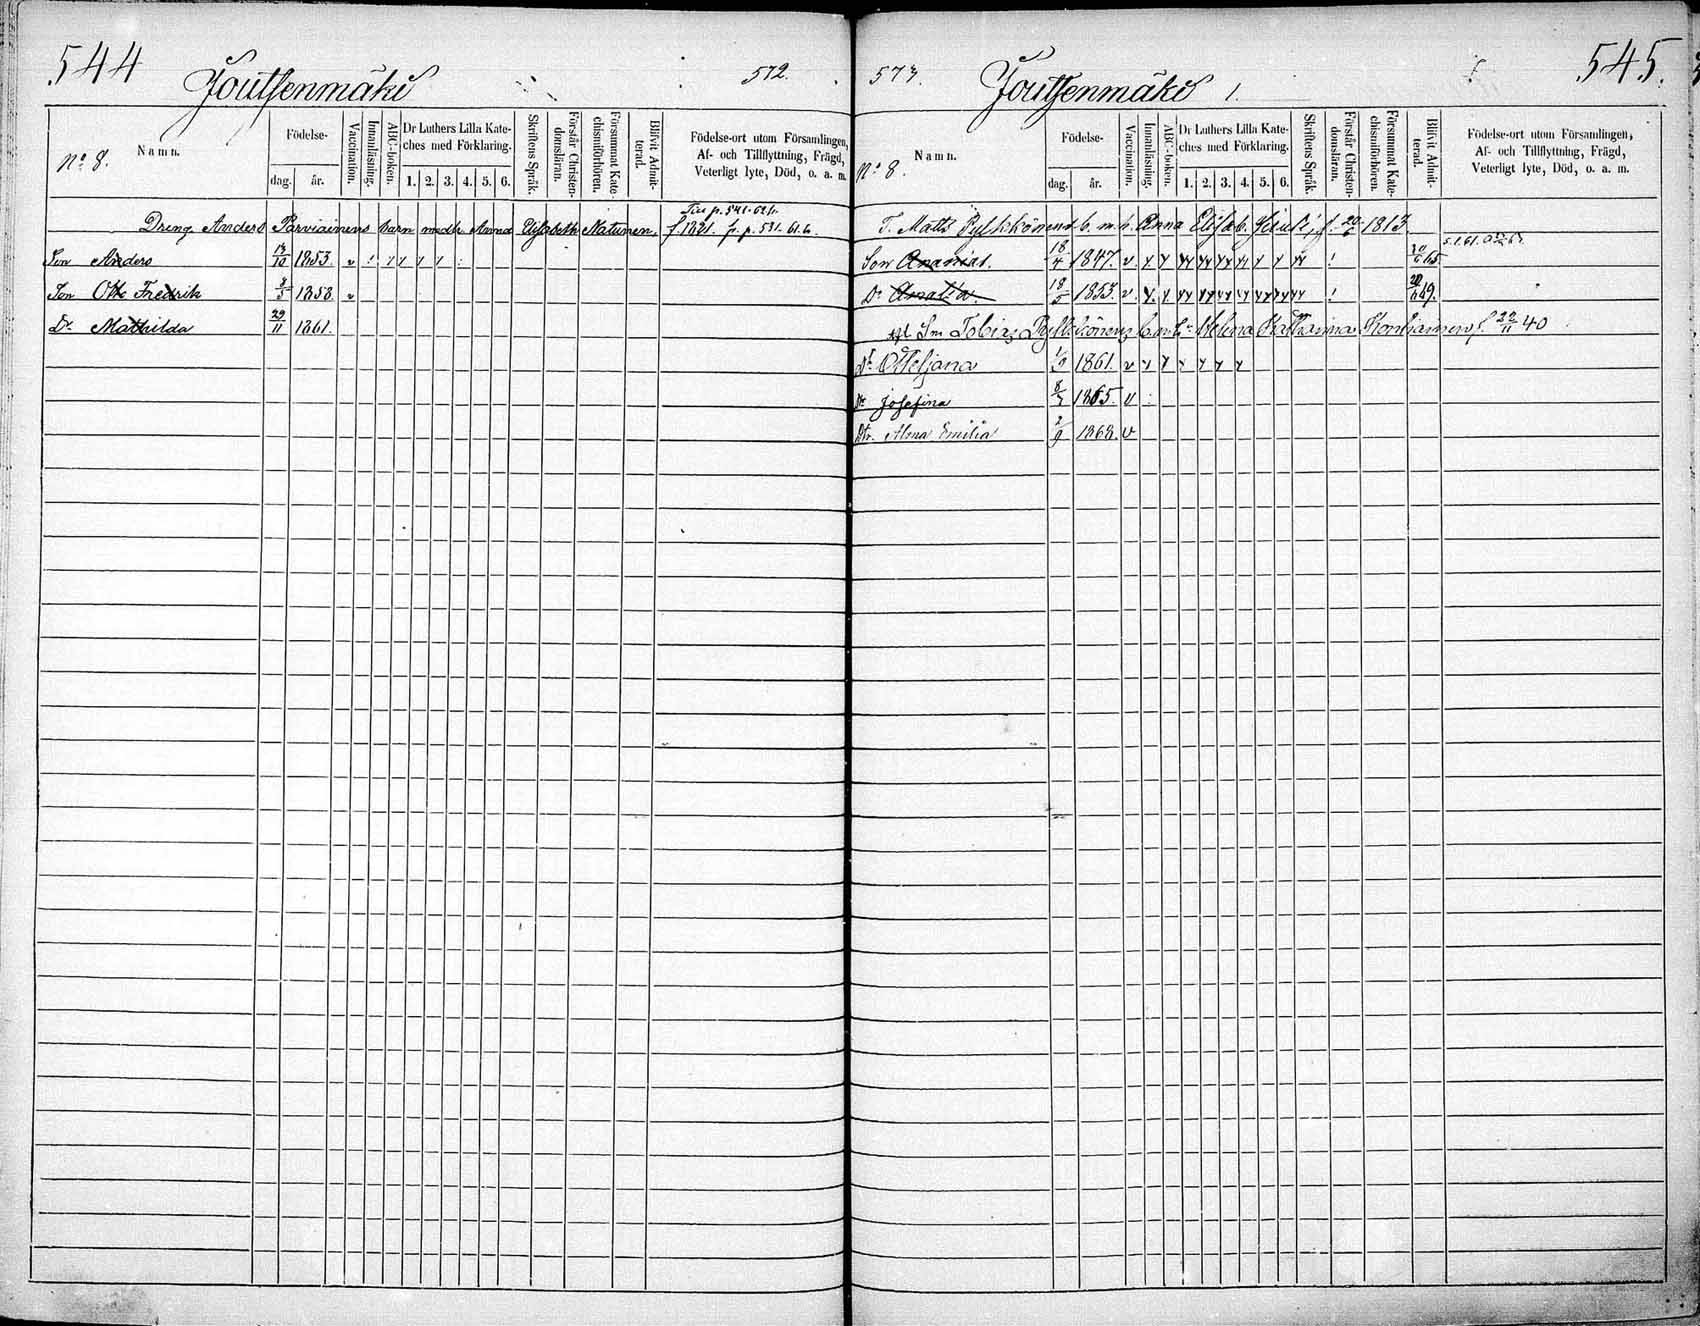 544
Joutsenmäki
572.
No 8.
Namn.
Födelse-
dag. år.
Vaccination.
Innanläsning.
ABC-boken.
Dr Luthers Lilla Kate-
ches med Förklaring.
1. 2. 3. 4. 5. 6.
Skriftens Språk.
Förstår Christen-
domsläran.
Försummat Kate-
chismiförhören.
Blifvit Admit-
terad.
Födelse-ort utom Församlingen,
Af- och Tillflyttning, Frägd,
Veterligt lyte, Död, o. a. m.
Dreng Anders Parviainens barn med h. Anna Elisabeth Natunen,
f. 1821. fr. p. 531. 61. b.
Son Anders 13/10 1853. v
Son Otto Fredrik 8/5 1858. v
Dr. Mathilda 29/11 1861.
573.
Joutsenmäki 1.
545.
No 8.
Namn.
Födelse-
dag. år.
Vaccination.
Innanläsning.
ABC-boken.
Dr Luthers Lilla Kate-
ches med Förklaring.
1. 2. 3. 4. 5. 6.
Skriftens Språk.
Förstår Christen-
domsläran.
Försummat Kate-
chismiförhören.
Blifvit Admit-
terad.
Födelse-ort utom Församlingen,
Af- och Tillflyttning, Frägd,
Veterligt lyte, Död, o. a. m.
T. Matts Pylkkönens b. m. h. Anna Elisab. 1813
Son Ananias. 18/4 1847. v 65
Dr Amalia. 18/5 1853. v. 69.
Sm Tobias Pylkkönens b. m. h. Helena Katharina f. 22/11 40
Dr Otteljana 1861. v
Dr Josefina 1865. v
Dtr. Alma Emilia 2/9 1868. v